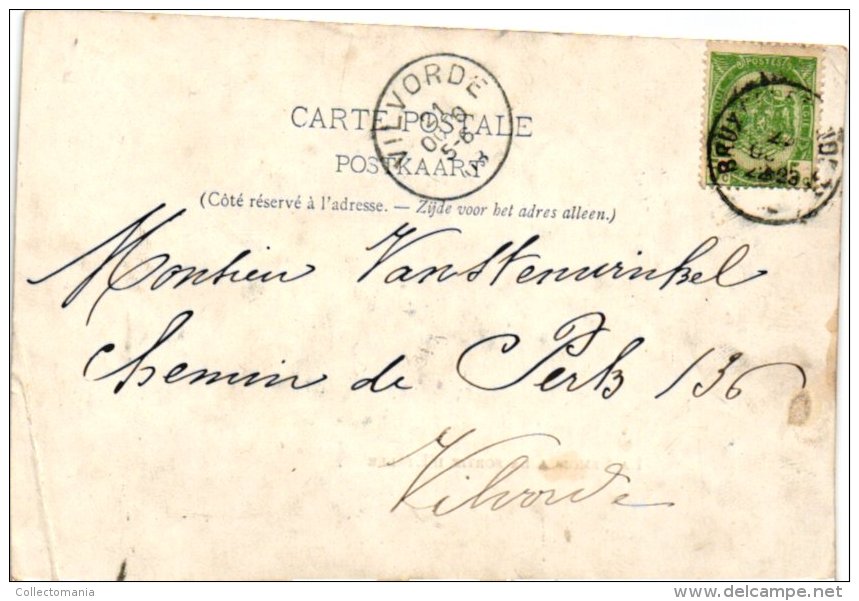 CARTE POSTALE
POSTKAART
(Côté réservé à l'adresse. — Zijde voor het adres alleen.)
VILVORDE
21
5-6
POSTES
BRUX
Monsieur Vanstenwinkel
Chemin de Perk 136
Vilvorde
Collectomania
delcampe.net